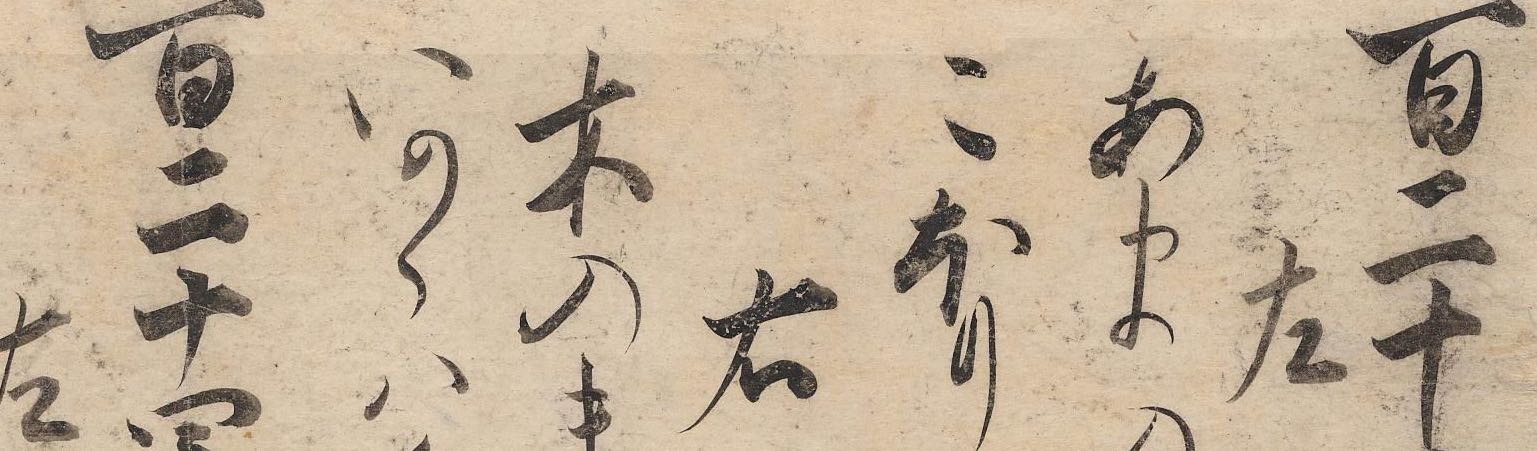 百二十
左
あまの
こほり
右
木のま
い
百二十四
左